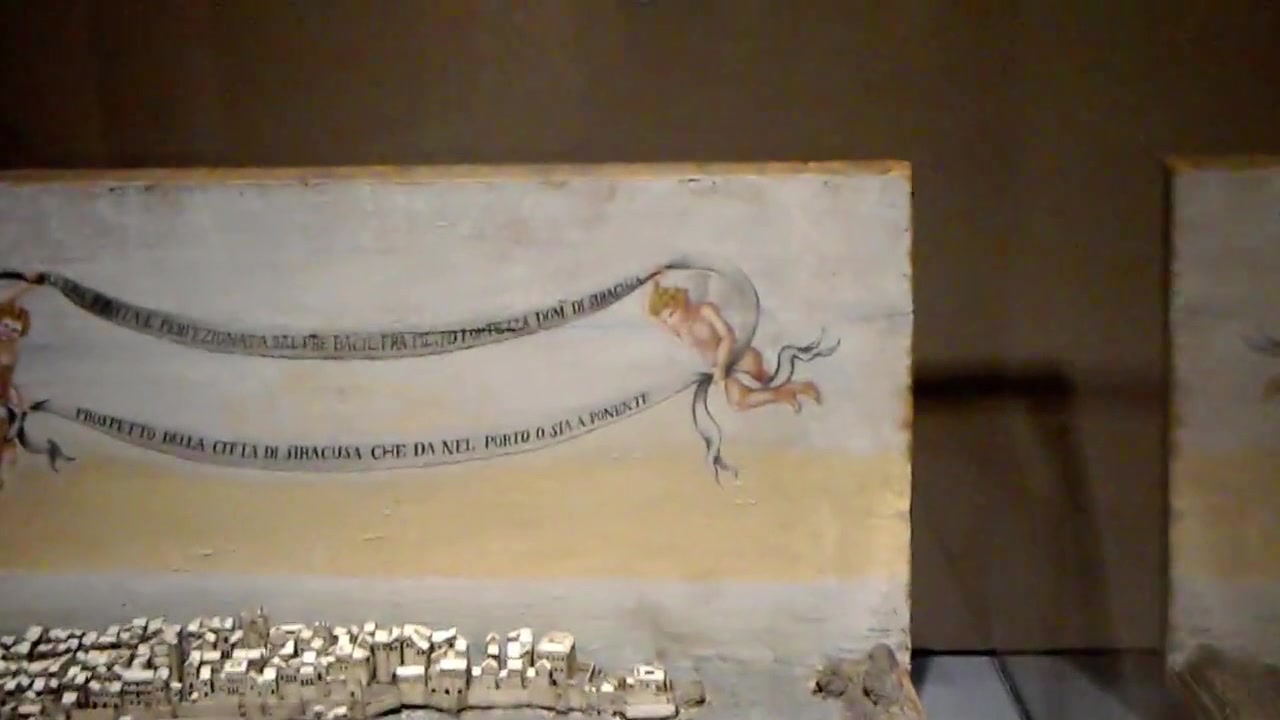 E PERFEZIONATA DAL PRE BACIL FRA FORTEZZA DOM. DI SIRACUSA
PROSPETTO DELLA CITTA DI SIRACUSA CHE DA NEL PORTO O SIA A PONENTE